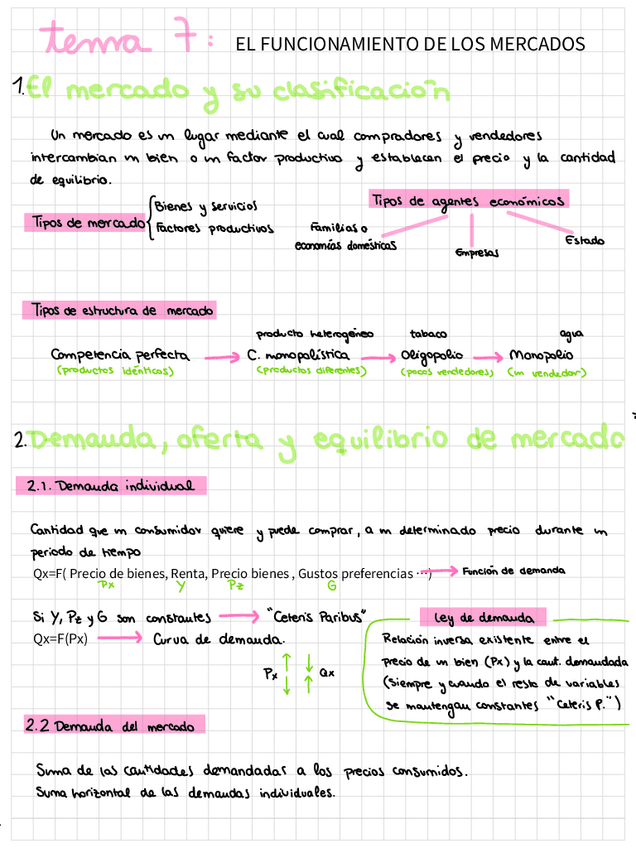 tema 7: EL FUNCIONAMIENTO DE LOS MERCADOS
1. El mercado y su clasificación
Un mercado es un lugar mediante el cual compradores y vendedores
intercambian un bien o un factor productivo y establecen el precio y la cantidad
de equilibrio.
Tipos de mercado
Bienes y servicios
Factores productivos
Tipos de agentes económicos
Familias o
economías domésticas
Empresas
Estado
Tipos de estructura de mercado
producto heterogéneo tabaco agua
Competencia perfecta → C. monopolística → Oligopolio → Monopolio
(productos idénticos) (productos diferentes) (pocos vendedores) (un vendedor)
2. Demanda, oferta y equilibrio de mercado
2.1. Demanda individual
Cantidad que un consumidor quiere y puede comprar, a un determinado precio durante un
periodo de tiempo
Qx=F( Precio de bienes, Renta, Precio bienes , Gustos preferencias ...) → Función de demanda
Px Y Pz G
Si Y, Pz y G son constantes → "Ceteris Paribus"
Qx=F(Px) → Curva de demanda.
Px ↑ ↓ Qx
↓ ↑
Ley de demanda
Relación inversa existente entre el
precio de un bien (Px) y la cant. demandada
(siempre y cuando el resto de variables
se mantengan constantes "Ceteris P.")
2.2 Demanda del mercado
Suma de las cantidades demandadar a los precios consumidos.
Suma horizontal de las demandas individuales.